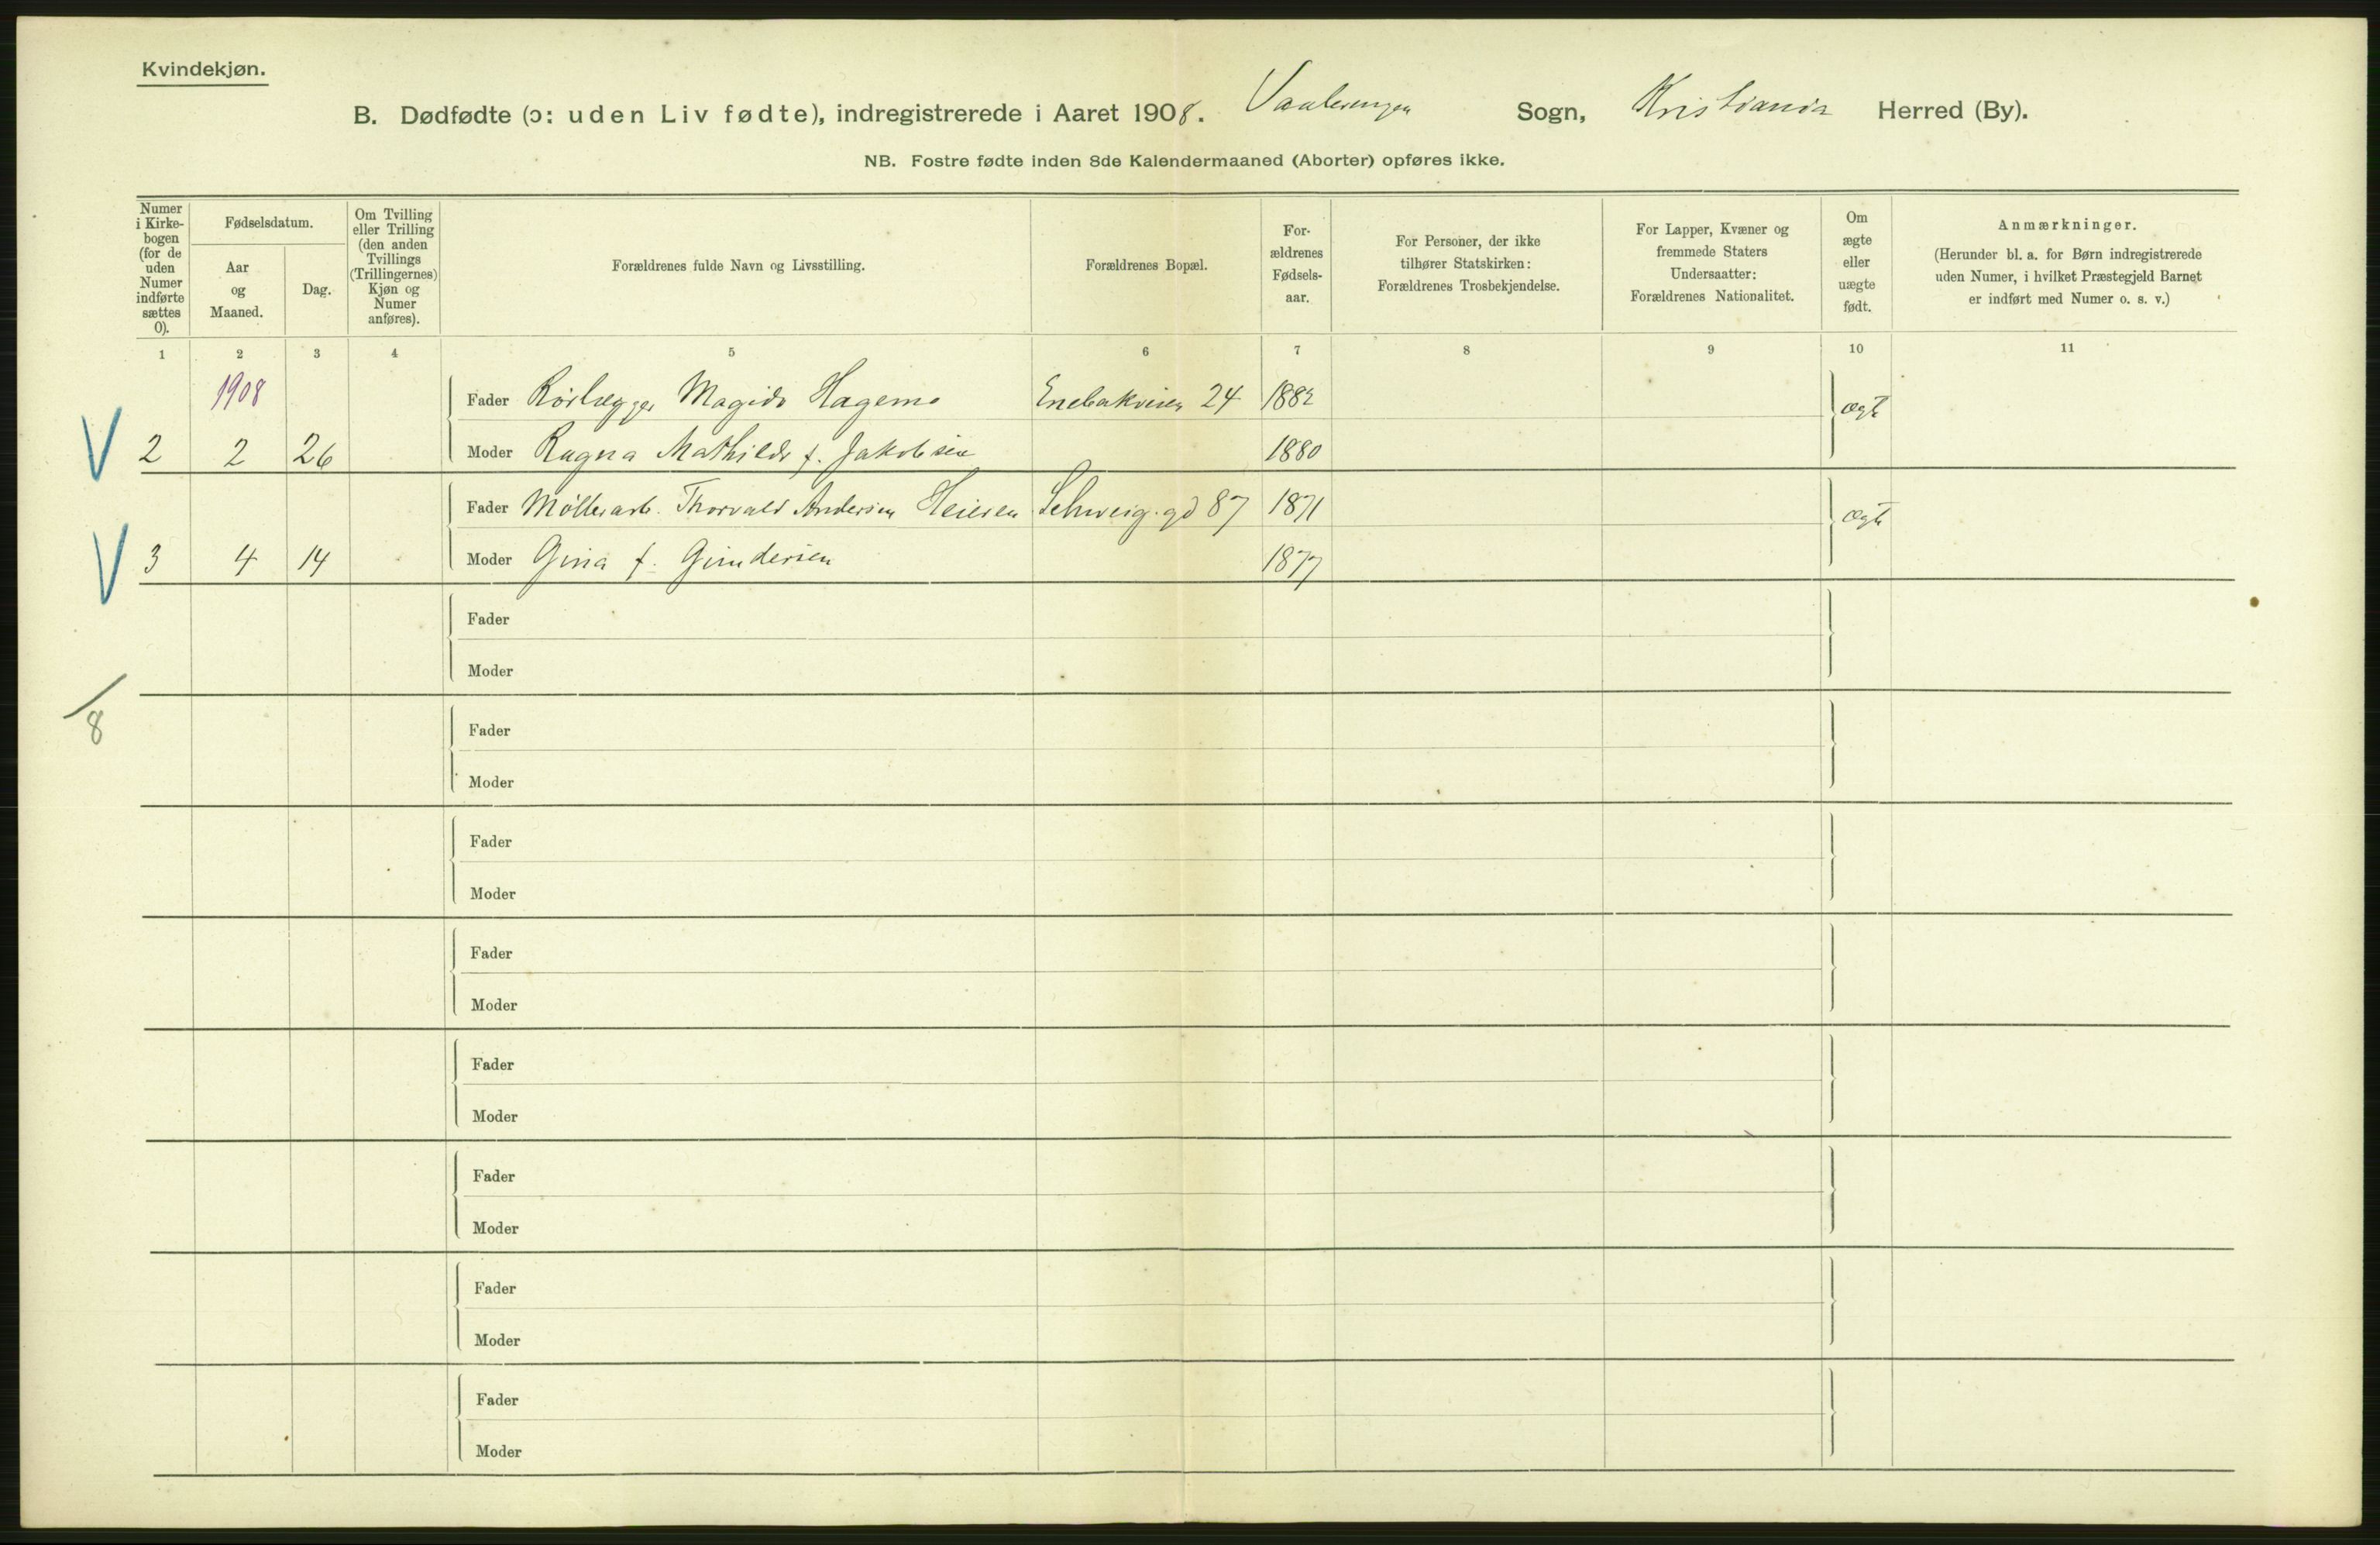 Kvindekjøn.
B. Dødfødte (ɔ: uden Liv fødte), indregistrerede i Aaret 1908. Vaalerengen Sogn, Kristiania Herred (By).
NB. Fostre fødte inden 8de Kalendermaaned (Aborter) opføres ikke.
Numer i Kirkebogen (for de uden Numer indførte sættes 0).
Fødselsdatum.
Aar og Maaned.
Dag.
Om Tvilling eller Trilling (den anden Tvillings (Trillingernes) Kjøn og Numer anføres).
Forældrenes fulde Navn og Livsstilling.
Forældrenes Bopæl.
Forældrenes Fødselsaar.
For Personer, der ikke tilhører Statskirken: Forældrenes Trosbekjendelse.
For Lapper, Kvæner og fremmede Staters Undersaatter: Forældrenes Nationalitet.
Om ægte eller uægte født.
Anmærkninger.
(Herunder bl. a. for Børn indregistrerede uden Numer, i hvilket Præstegjeld Barnet er indført med Numer o. s. v.)
1 2 3 4 5 6 7 8 9 10 11
1908 Fader Rørlægger Hagema Enebakveien 24 1882 ægt
V 2 2 26 Moder Ragna Mathilde f. Jakobsen 1880
Fader Møllerarb. Thorvald Andersen Heiesen Schweig.gd 87 1871 ægt
V 3 4 14 Moder Gina f. Gundersen 1877
Fader
Moder
8
Fader
Moder
Fader
Moder
Fader
Moder
Fader
Moder
Fader
Moder
Fader
Moder
Fader
Moder